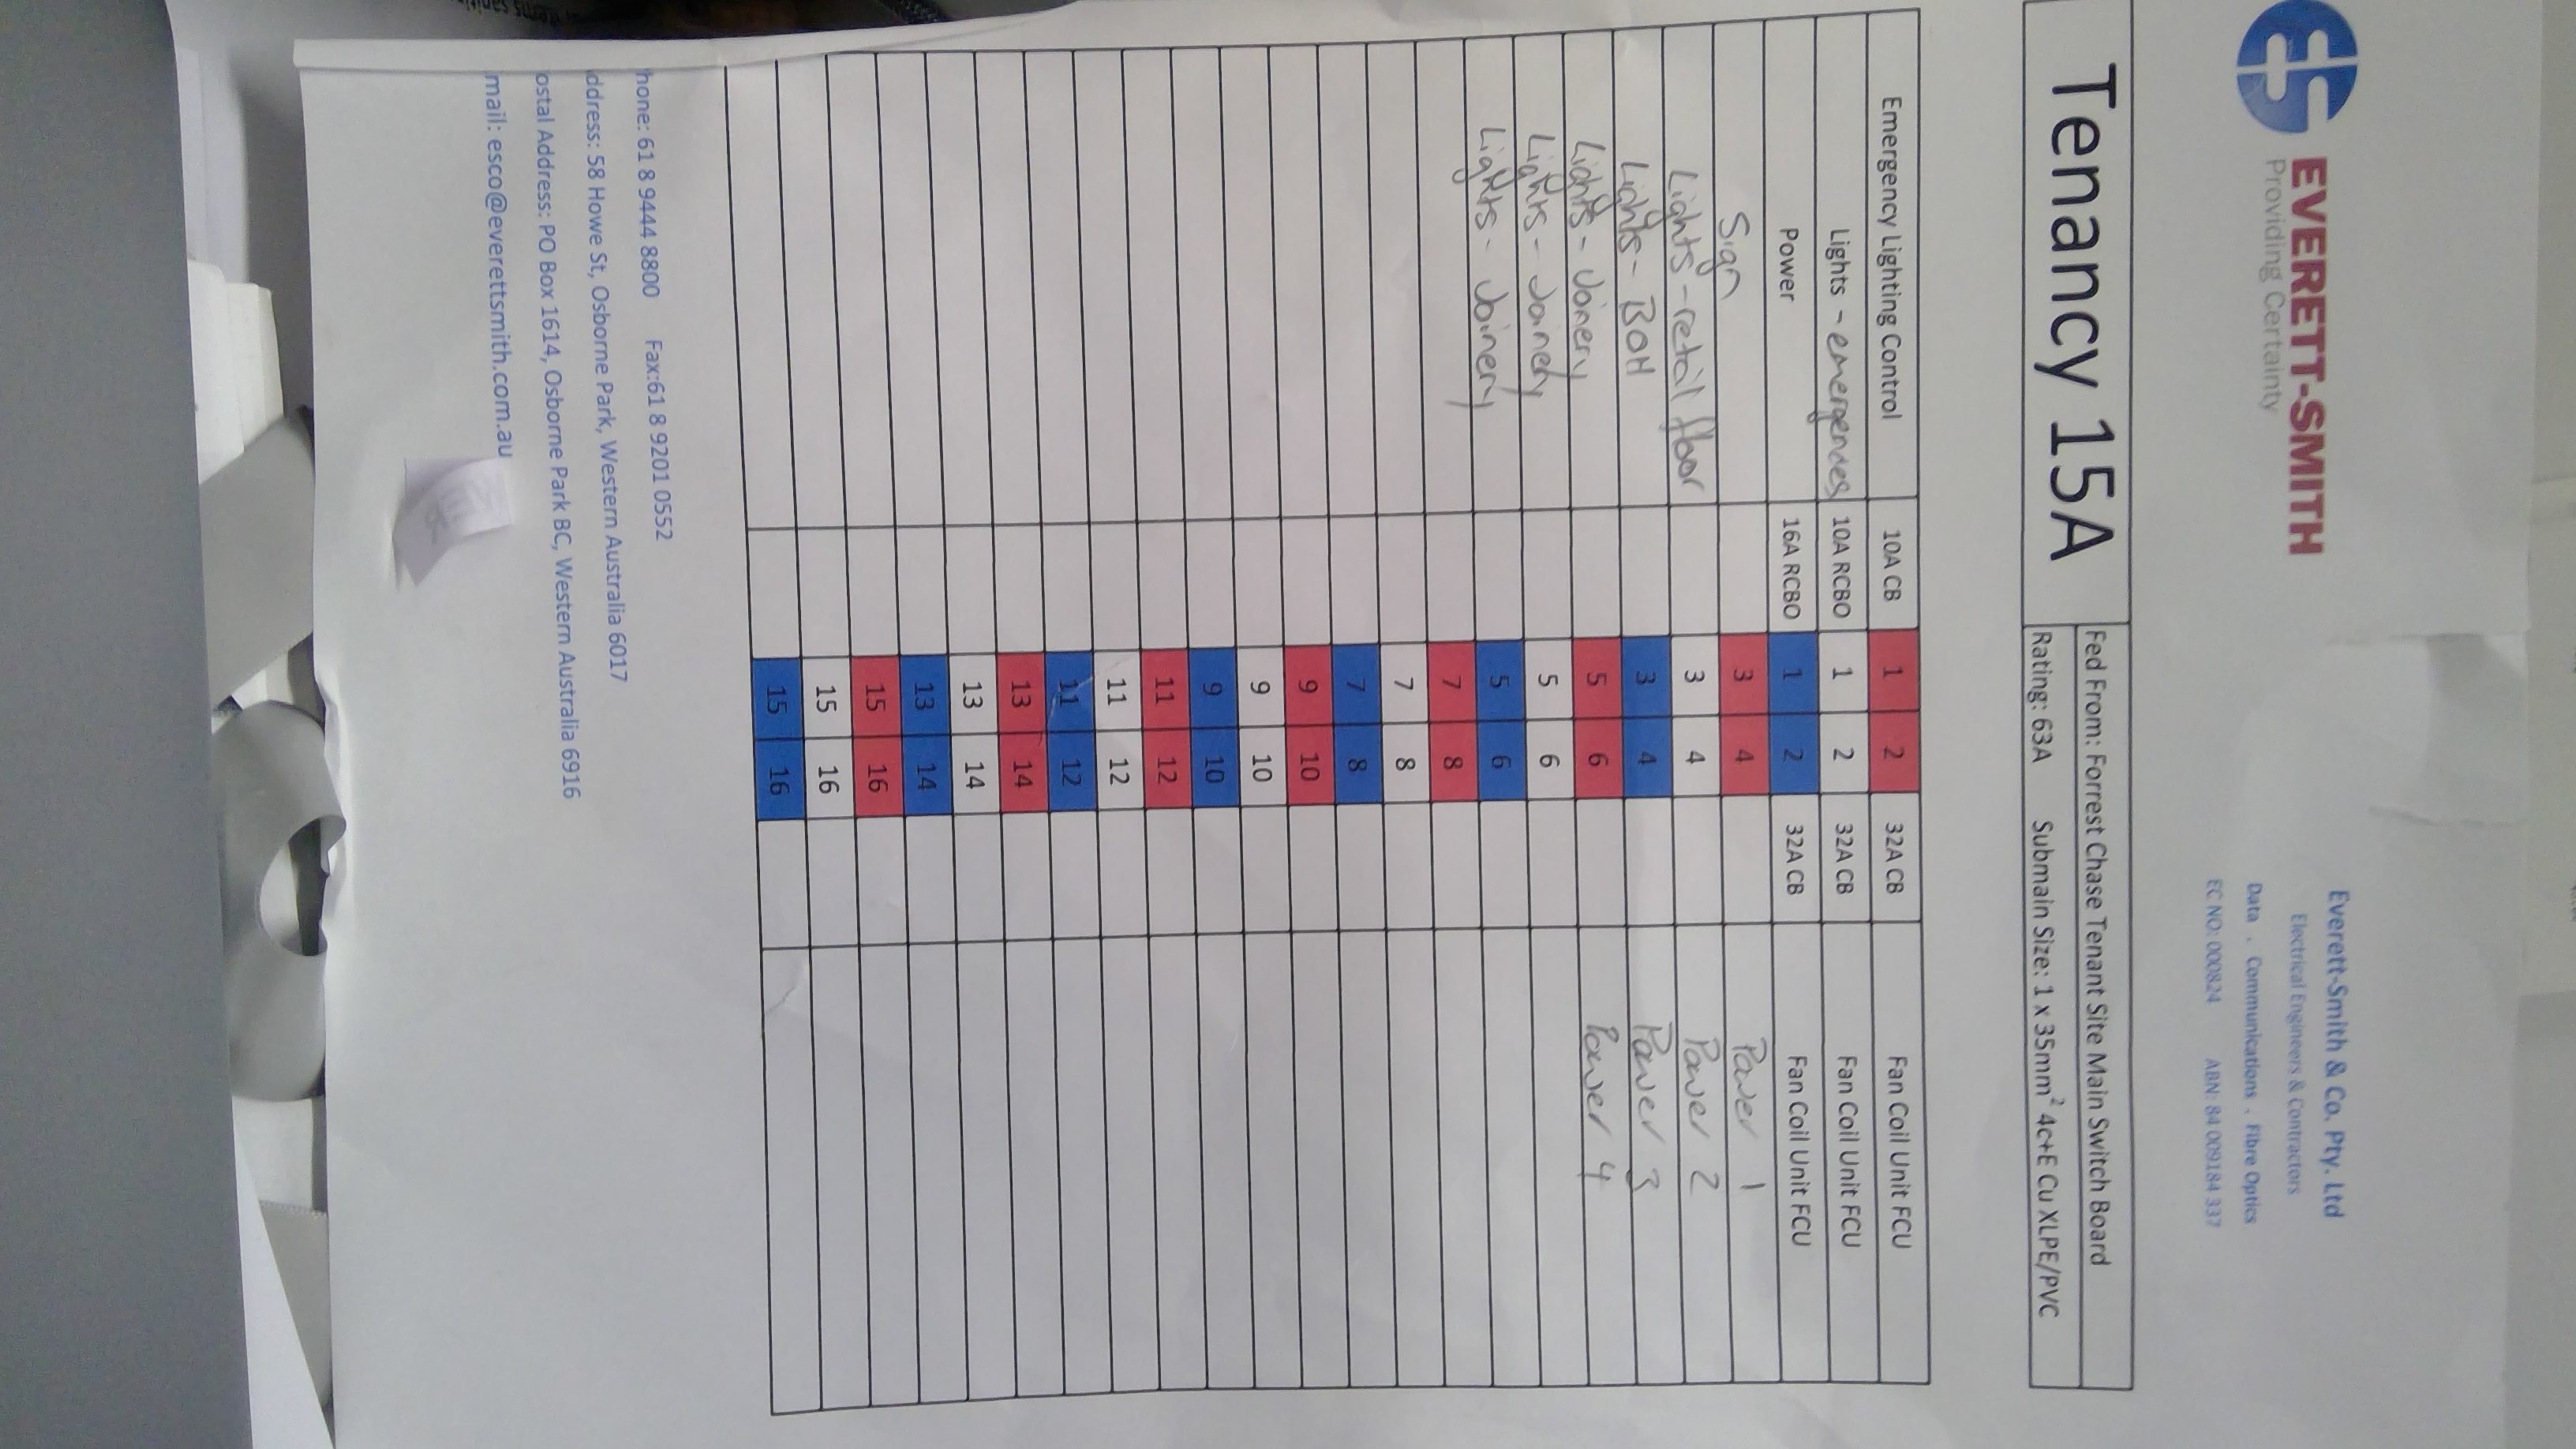 EVERETT-SMITH
Providing Certainty
Everett-Smith & Co. Pty. Ltd
Electrical Engineers & Contractors
Data . Communications . Fibre Optics
EC NO: 000824 ABN: 84 009 184 337
Tenancy 15A
Fed From: Forrest Chase Tenant Site Main Switch Board
Rating: 63A Submain Size: 1 x 35mm² 4c+E Cu XLPE/PVC
Emergency Lighting Control 10A CB 1 2 32A CB Fan Coil Unit FCU
Lights - emergencies 10A RCBO 1 2 32A CB Fan Coil Unit FCU
Power 16A RCBO 1 2 32A CB Fan Coil Unit FCU
Sign 3 4 Power 1
Lights - retail floor 3 4 Power 2
Lights - BOH 3 4 Power 3
Lights - Joinery 5 6 Power 4
Lights - Joinery 5 6
Lights - Joinery 5 6
7 8
7 8
7 8
9 10
9 10
9 10
11 12
11 12
11 12
13 14
13 14
13 14
15 16
15 16
15 16
hone: 61 8 9444 8800 Fax:61 8 9201 0552
ddress: 58 Howe St, Osborne Park, Western Australia 6017
ostal Address: PO Box 1614, Osborne Park BC, Western Australia 6916
mail: esco@everettsmith.com.au